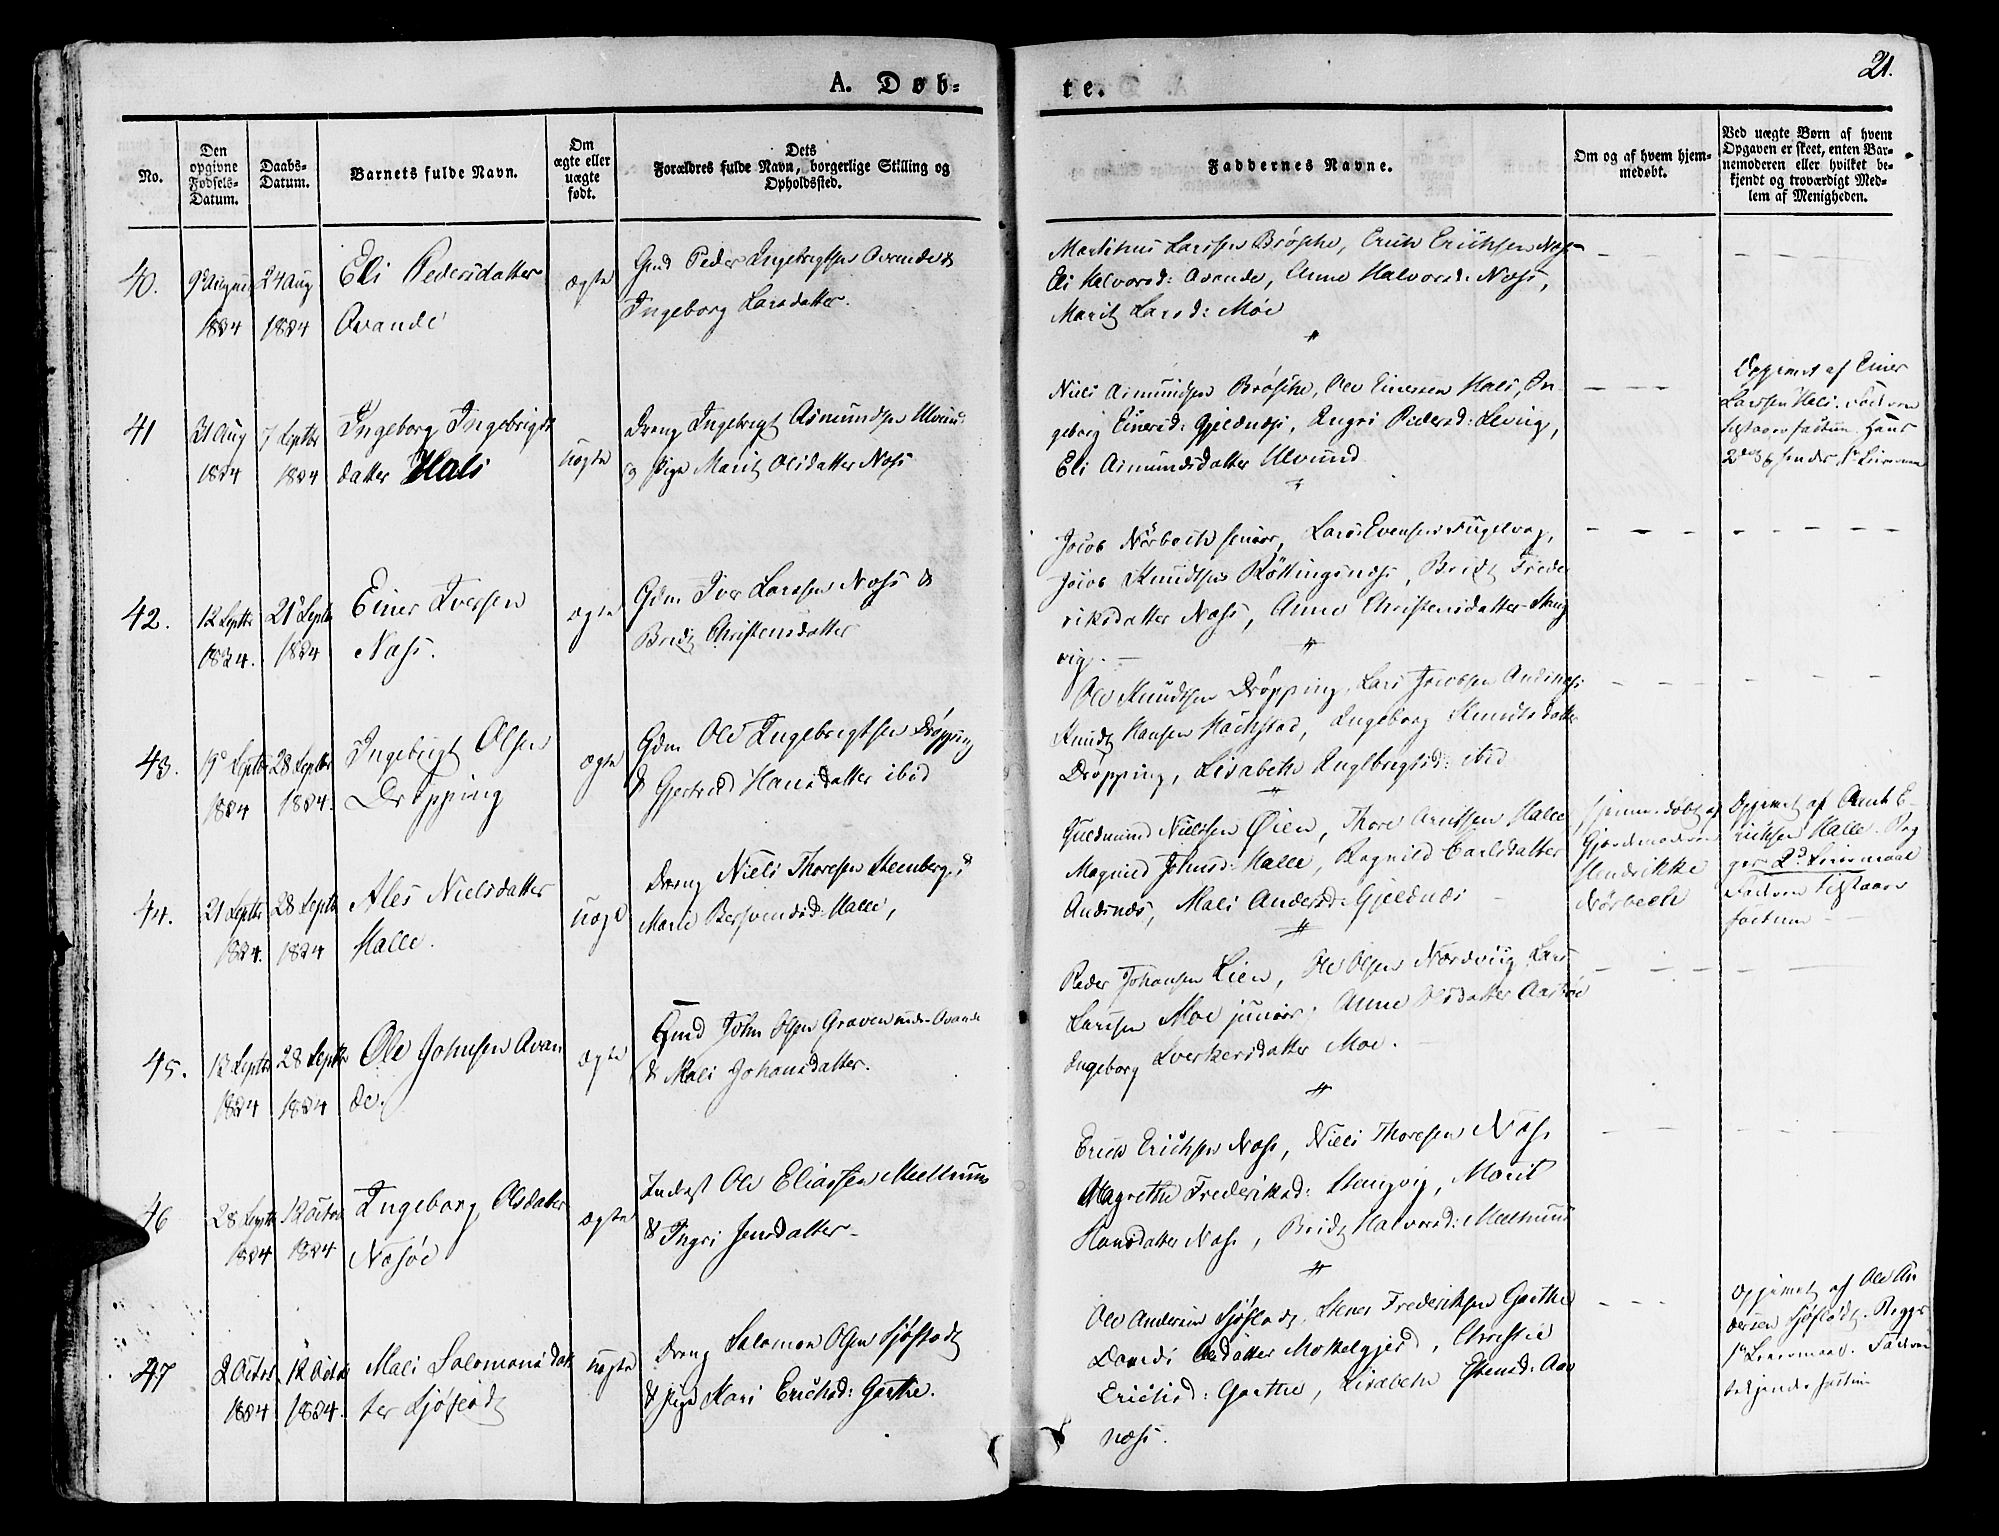 21.
A. Døb-
te.
No.
Den opgivne Fødsels-Datum.
Daabs-Datum.
Barnets fulde Navn.
Om ægte eller uægte født.
Dets Forældres fulde Navn, borgerlige Stilling og Opholdssted.
Faddernes Navne.
Om og af hvem hjem-
medøbt.
Ved uægte Børn af hvem
Opgaven er skeet, enten Bar-
nemoderen eller hvilket be-
kjendt og troværdigt Med-
lem af Menigheden.
40.
24 Aug
1824
1824
Eli Pedersdatter
Ovande
ægte
Gmd Peder Ingebrigtsen Ovande &
Ingeborg Larsdatter.
Martinus Larssen Brøske, Erich Erichsen Næss
Eli Halvorsd: Ovande, Anne Halvorsd: Næss,
Marit Larsd: Moe
41
31 Aug
1824
7 Septbr
1824
Ingeborg Ingebrigts
datter Hals
uægte
Dreng Ingebrigt Asmundsen Ulvund
& Pige Marit Olsdatter Næss
Niels Asmundsen Brøske, Ole Einersen Hals, In
geborg Einersd: Gjeldnæs, Ingri Pedersd:
Eli Asmundsdatter Ulvund
Opgivet af Einer
Larssen Hals.
42.
12 Septbr
1824.
21 Septbr
1824
Einer Iversen
Næss.
ægte
Gdm Iver Larssen Næss &
Bridt Christensdatter
Jacob Nørbech senior, Lars Evensen Fugelvog,
Jacob Knudtsen Røttingsnæs, Bridt Frede
riksdatter Næss, Anne Christensdatter Stang
vig.
43.
19 Septbr
1824
28 Septbr
1824.
Ingebrigt Olsen
Drøpping
ægte
Gdm Ole Ingebrigtsen Drøpping
& Gjertrud Hansdatter ibid
Ole Knudtsen Drøpping, Lars Jacobsen Andsnæs
Knudt Hansen Hachstad, Ingeborg Knudtsdatter
Drøpping, Lisabeth Ingebrigtsd: ibid
44.
21 Septbr
1824.
28 Septbr
1824
Ales Nielsdatter
Halle.
uægte
Dreng Niels Thoresen Steenberg &
Marit Bersvendsd: Halle,
Guldmund Nielssen Øien, Thore Arntsen Halle
Magnild Johnsd: Halle, Ragnild Carlsdatter
Andsnæs, Mali Andersd: Gjeldnæs
hjemmedøbt af
Gjordmoderen
Hendrikke
Nørbech
Opgivet af Arnt E-
richsen Halle.
45.
13 Septbr
1824
28 Septbr
1824
Ole Johnsen Ovan
de.
ægte
Gmd John Olsen Graven under Ovande
& Mali Johansdatter.
Peder Johansen Lien, Ole Olsen Nordvig Lars
Larssen Moe junior, Anne Olsdatter Aastrøe
Ingeborg Sverkersdatter Moe.
46
28 Septbr
1824
12 Octbr
1824
Ingeborg Olsdatter
Næsøe
ægte
Inderst Ole Eliassen Meelhuus
& Ingri Jensdatter
Erich Erichsen Næss, Niels Thoresen Næss
Magrethe Frederiksd: Stangvig, Marit
Hansdatter Næss, Bridt Halvorsd: Meelhuus
47
2 Octbr
1824
12 Octbr
1824.
Mali Salomonsdat
ter Sjøflodt
uægte
Dreng Salomon Olsen Sjøflodt
& Pige Kari Erichsd: Gorthe.
Ole Andersen Sjøflodt, Stener Frederiksen Gorthe
Dordi Olsdatter Mokkelgjerd, Christie
Erichsd: Gorthe, Lisabeth
næss.
Opgivet af Ole An
dersen Sjøflodt.